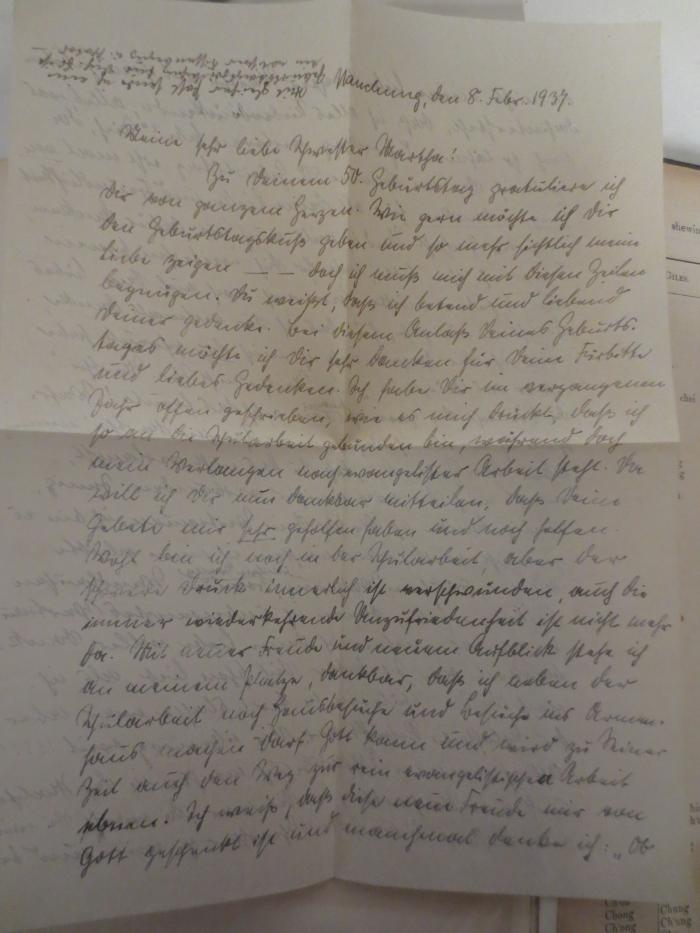 Nanchung, den 8. Febr. 1937.
Meine sehr liebe Schwester Martha!
Zu Deinem 50. Geburtstag gratuliere ich
Dir von ganzem Herzen. Wie gern möchte ich Dir
den Geburtstagskuß geben und so mehr sichtlich meine
Liebe zeigen — — doch ich muß mich mit diesen Zeilen
begnügen. Du weißt, daß ich betend und liebend
Deiner gedenke. Bei diesem Anlaß Deines Geburts-
tages möchte ich Dir sehr danken für Deine Fürbitte
und liebes Gedenken. Ich habe Dir im vergangenen
Jahr offen geschrieben, wie es mich drückt, daß ich
so an die Schularbeit gebunden bin, während doch
mein Verlangen nach evangelistischer Arbeit steht. Da
will ich Dir nun dankbar mitteilen, daß Deine
Gebete mir sehr geholfen haben und noch helfen.
Wohl bin ich noch in der Schularbeit, aber der
schwere Druck innerlich ist verschwunden, auch die
immer wiederkehrende Unzufriedenheit ist nicht mehr
da. Mit neuer Freude und neuem Aufblick stehe ich
an meinem Platze, dankbar, daß ich neben der
Schularbeit noch Hausbesuche und Besuche ins Armen-
haus machen darf. Gott kann und wird zu Seiner
Zeit auch den Weg zur rein evangelistischen Arbeit
ebnen. Ich weiß, daß diese neue Freude mir von
Gott geschenkt ist und manchmal denke ich: „Ob
GILES.
Chong
Chung
Ch'ung